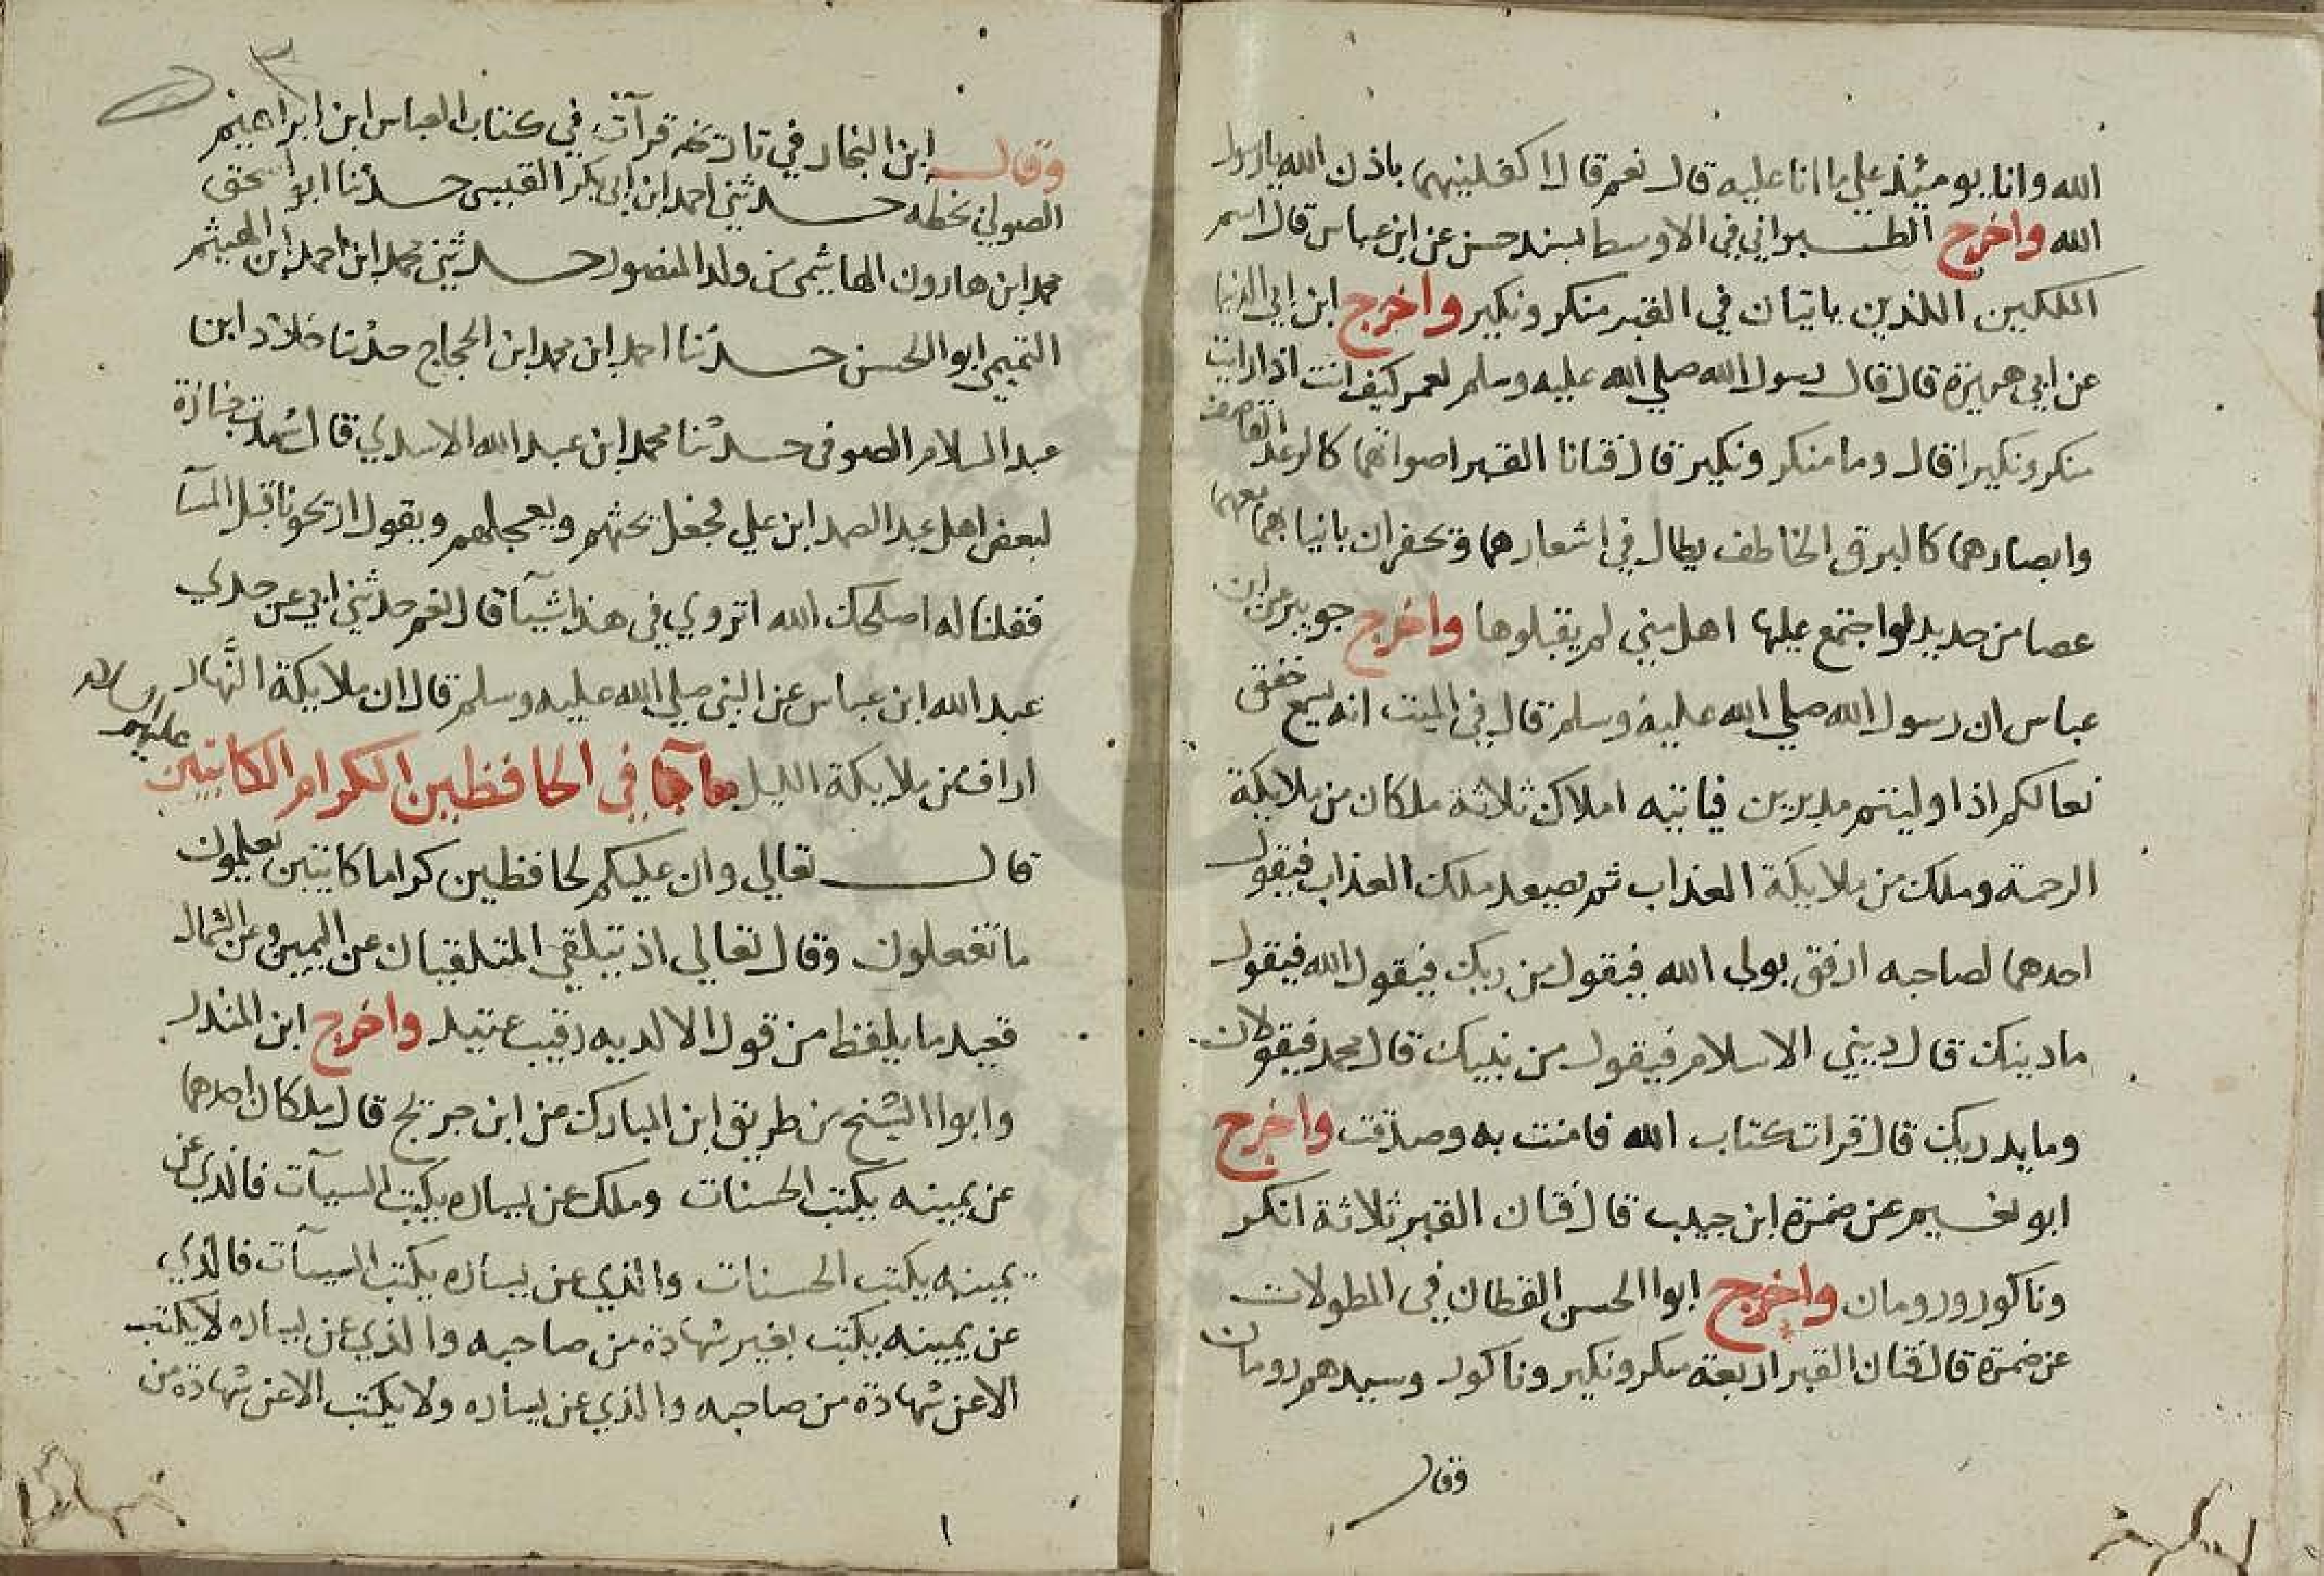 الله وانا يوميئذ علي ما انا عليه قال نعم قال اكفلنيهما باذن الله يا رسول
الله واخرج الطبراني في الاوسط بسند حسن عن ابن عباس قال اسم
الملكين اللذين ياتيان في القبر منكر ونكير واخرج ابن ابي الدنيا
عن ابي هريرة قال قال رسول الله صلي الله عليه وسلم لعمر كيف انت اذا رايت
منكر ونكيرا قال وما منكر ونكير قال فتانا القبر اصواتهما كالرعد القاصف
وابصارهما كالبرق الخاطف يطال في اشعارهما ويحفران بانيابهما معهما
عصا من حديد لو اجتمع عليها اهل مني لم يقبلوها واخرج جويبر عن ابن
عباس ان رسول الله صلي الله عليه وسلم قال في الميت انه يسمع خفق
نعالكم اذا وليتم مدبرين فياتيه املاك ثلاثة ملكان من ملايكة
الرحمة وملك من ملايكة العذاب ثم يصعد ملك العذاب فيقول
احدهما لصاحبه ارفق بولي الله فيقول من ربك فيقول الله فيقول
ما دينك قال ديني الاسلام فيقول من نبيك قال محمد فيقولان
وما يدريك قال قرات كتاب الله فامنت به وصدقت واخرج
ابو نعيم عن ضمرة ابن حبيب قال فتان القبر ثلاثة انكر
وناكور ورومان واخرج ابوا الحسن القطان في المطولات
عن ضمرة قال فتان القبر اربعة منكر ونكير وناكور وسيدهم رومان
وقال
٣
وقال ابن النجار في تاريخه قرآت في كتاب العباس ابن ابراهيم
الصولي بخطه حدثني احمد ابن ابي بكر القبيسي حدثنا ابو اسحق
محمد ابن هارون الهاشمي من ولد المنصور حدثني محمد ابن احمد ابن الهيثم
التميمي ابوا الحسن حدثنا احمد ابن محمد ابن الحجاج حدثنا خلاد ابن
عبد السلام الصوفي حدثنا محمد ابن عبد الله الاسدي قال شهدت جنازة
لبعض اهل عبد الصمد ابن علي فجعل يحثهم ويعجلهم ويقول اريحونا قبل المسآ
فقلنا له اصلحك الله اتروي في هذا شيآ قال نعم حدثني ابي عن جدي
عبد الله ابن عباس عن النبي صلي الله عليه وسلم قال ان ملايكة النهار
اراف من ملايكة الليل ما جآ في الحافظين الكرام الكاتبين
عليهم السلام
قال تعالي وان عليكم لحافظين كراما كاتبين يعلمون
ما تفعلون وقال تعالي اذ يتلقي المتلقيان عن اليمين وعن الشمال
قعيد ما يلفظ من قول الا لديه رقيب عتيد واخرج ابن المنذر
وابوا الشيخ من طريق ابن المبارك عن ابن جريج قال ملكان احدهما
عن يمينه يكتب الحسنات وملك عن يساره يكتب السيآت فالذي عن
يمينه يكتب الحسنات والذي عن يساره يكتب السيآت فالذي
عن يمينه يكتب بغير شهادة من صاحبه والذي عن يساره لا يكتب
الا عن شهادة من صاحبه والذي عن يساره ولا يكتب الا عن شهادة من
١